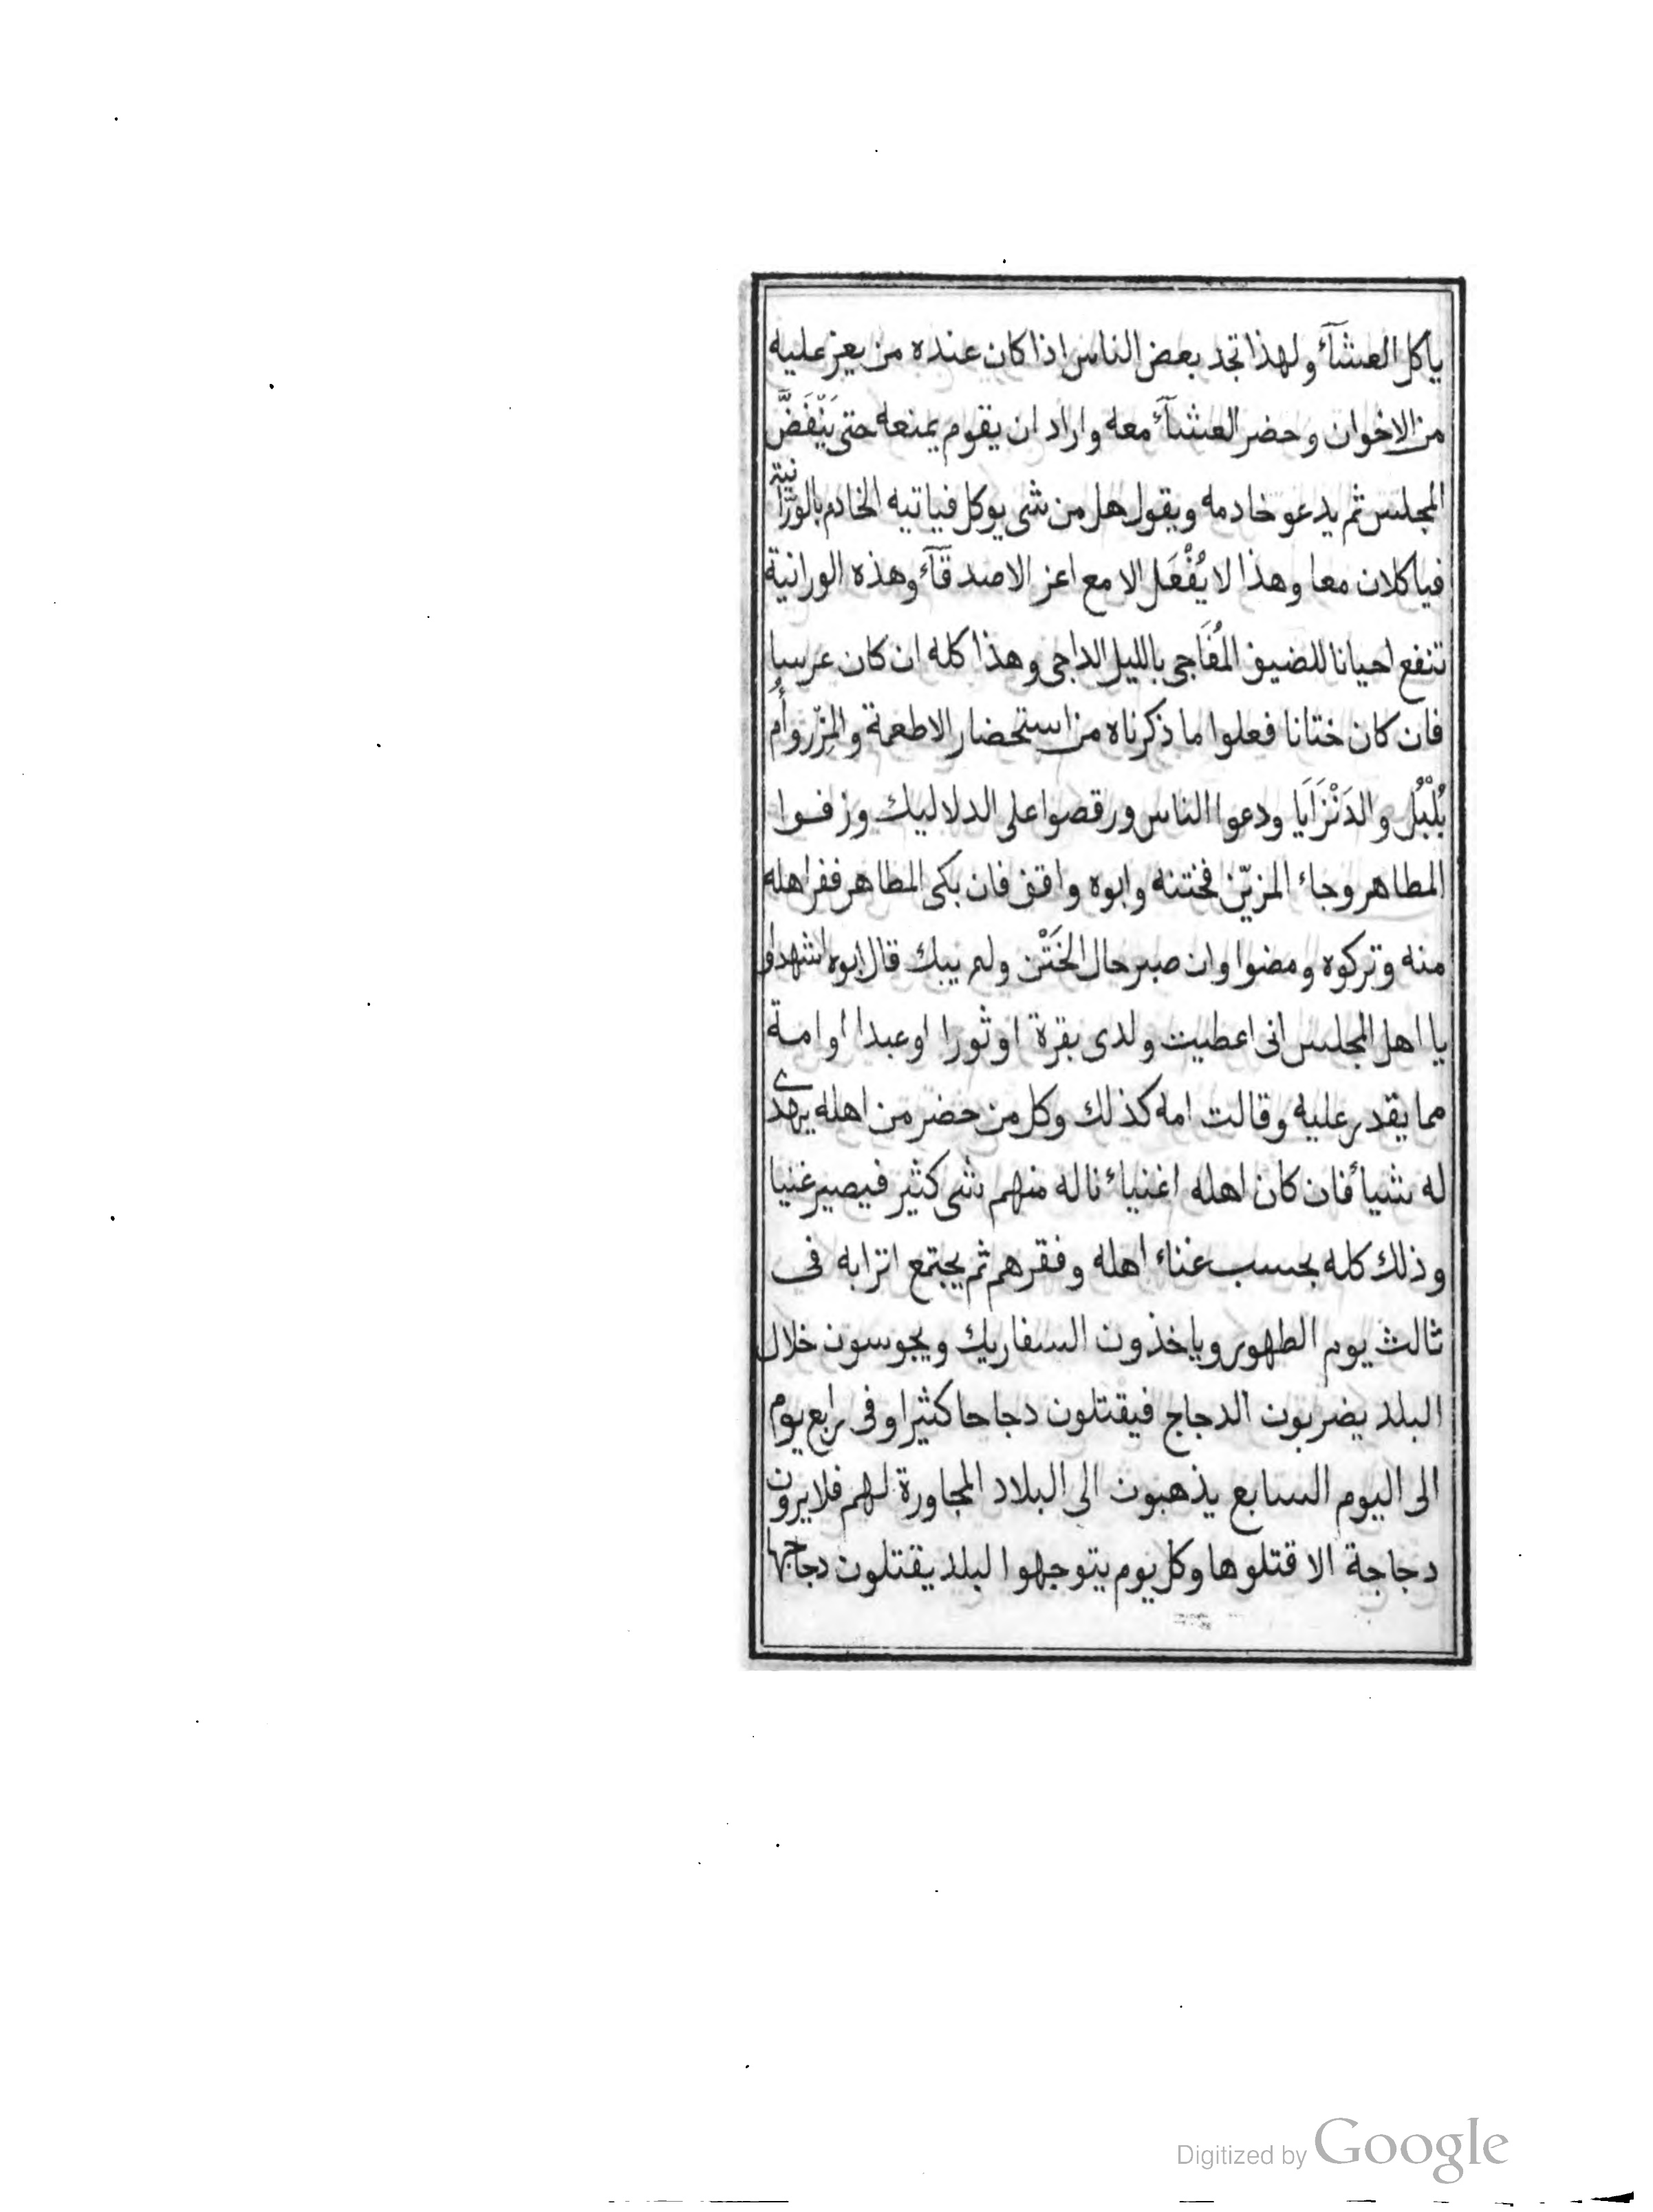 ياكل العشآء ولهذا تجد بعض الناس اذا كان عنده من يعز عليه
من الاخوان وحضر العشآء معه واراد ان يقوم يمنعه حتى يَنْفَضَّ
المجلس ثم يدعو خادمه ويقول هل من شى يوكل فياتيه الخادم بالورّانية
فياكلان معا وهذا لا يُفْعَل الا مع اعز الاصدقآء وهذه الورانية
تنفع احيانا للضيف المُفَاجى بالليل الداجى وهذا كله ان كان عرسا
فان كان ختانا فعلوا ما ذكرناه من استحضار الاطعمة والمِزّر وأُم
بُلْبُل والدَنْزَايَا ودعوا الناس ورقصوا على الدلاليك وزفوا
المطاهر وجاء المزيّن فختنه وابوه واقف فان بكى المطاهر ففر اهله
منه وتركوه ومضوا وان صبر حال الخَتْن ولم يبك قال ابوه اشهدوا
يا اهل المجلس انى اعطيت ولدى بقرة او ثورا او عبدا او امة
مما يقدر عليه وقالت امه كذلك وكل من حضر من اهله يهدى
له شيأ فان كان اهله اغنياء ناله منهم شى كثير فيصير غنيا
وذلك كله بحسب غناء اهله وفقرهم ثم يجتمع اترابه فى
ثالث يوم الطهور وياخذون السفاريك ويجوسون خلال
البلد يضربون الدجاج فيقتلون دجاجا كثيرا وفى رابع يوم
الى اليوم السابع يذهبون الى البلاد المجاورة لهم فلا يرون
دجاجة الا قتلوها وكل يوم يتوجهوا لبلد يقتلون دجاجها
Digitized by Google